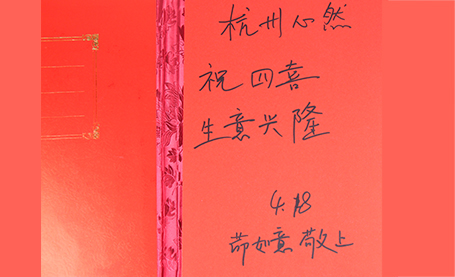 杭州心然
祝四喜
生意兴隆
4.18
茆如意敬上